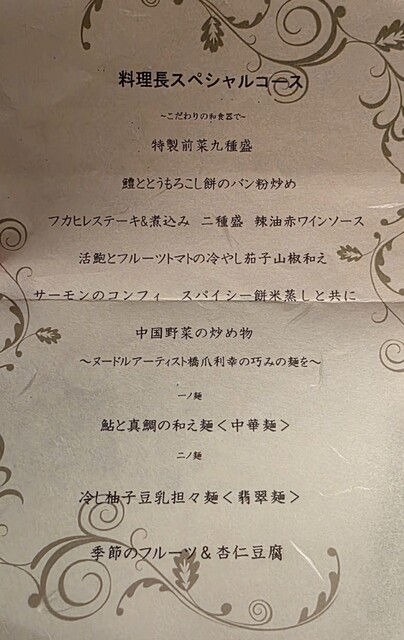 料理長スペシャルコース
~こだわりの和食器で~
特製前菜九種盛
鱧ととうもろこし餅のパン粉炒め
フカヒレステーキ&煮込み 二種盛 辣油赤ワインソース
活鮑とフルーツトマトの冷やし茄子山椒和え
サーモンのコンフィ スパイシー餅米蒸しと共に
中国野菜の炒め物
～ヌードルアーティスト橋爪利幸の巧みの麺を～
一ノ麺
鮎と真鯛の和え麺＜中華麺＞
二ノ麺
冷し柚子豆乳担々麺＜翡翠麺＞
季節のフルーツ＆杏仁豆腐